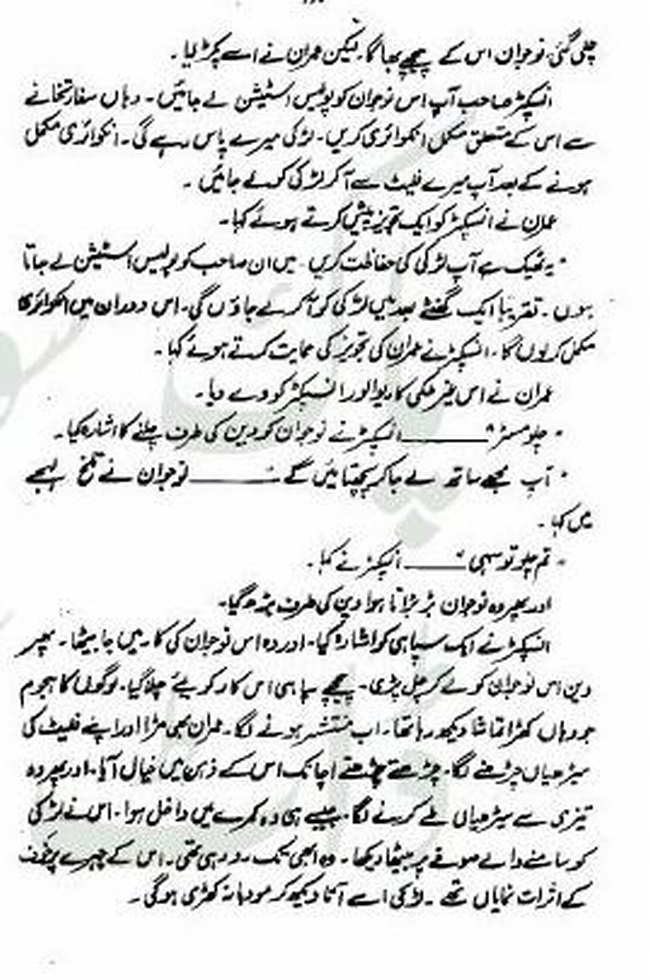 چلی گئی، نوجوان اس کے پیچھے بھاگا۔ لیکن عمران نے اسے پکڑ لیا۔
انسپکٹر صاحب آپ اس نوجوان کو پولیس اسٹیشن لے جائیں۔ وہاں سفارتخانے
سے اس کے متعلق مکمل انکوائری کریں۔ لڑکی میرے پاس رہے گی۔ انکوائری مکمل
ہونے کے بعد آپ میرے فلیٹ سے آ کر لڑکی کو لے جائیں۔
عمران نے انسپکٹر کو ایک تجویز پیش کرتے ہوئے کہا۔
" یہ ٹھیک ہے آپ لڑکی کی حفاظت کریں۔ میں ان صاحب کو پولیس اسٹیشن لے جاتا
ہوں۔ تقریباً ایک گھنٹے بعد میں لڑکی کو آ کر لے جاؤں گی۔ اس دوران میں انکوائری
مکمل کر لوں گا۔ انسپکٹر نے عمران کی تجویز کی حمایت کرتے ہوئے کہا۔
عمران نے اس غیر ملکی کا ریوالور انسپکٹر کو دے دیا۔
" چلو مسٹر " ــــــــ انسپکٹر نے نوجوان کو دین کی طرف چلنے کا اشارہ کیا۔
" آپ مجھے ساتھ لے جا کر پچھتائیں گے " ــــــــ نوجوان نے تلخ لہجے
میں کہا۔
" تم چلو تو سہی " ــــــــ انسپکٹر نے کہا۔
اور پھر وہ نوجوان بڑبڑاتا ہوا دین کی طرف بڑھ گیا۔
انسپکٹر نے ایک سپاہی کو اشارہ کیا۔ اور وہ اس نوجوان کی کار میں جا بیٹھا۔ پھر
دین اس نوجوان کو لے کر چل پڑی۔ پیچھے سپاہی اس کار کو لیے چلا گیا۔ لوگوں کا ہجوم
جو وہاں کھڑا تماشا دیکھ رہا تھا۔ اب منتشر ہونے لگا۔ عمران بھی مڑا اور اپنے فلیٹ کی
سیڑھیاں چڑھنے لگا۔ چڑھتے چڑھتے اچانک اس کے ذہن میں خیال آیا۔ اور پھر وہ
تیزی سے سیڑھیاں طے کرنے لگا۔ جیسے ہی وہ کمرے میں داخل ہوا۔ اس نے لڑکی
کو سامنے والے صوفے پر بیٹھا دیکھا۔ وہ ابھی تک رو رہی تھی۔ اس کے چہرے پر خوف
کے اثرات نمایاں تھے۔ لڑکی اسے آتا دیکھ کر مودبانہ کھڑی ہو گی۔